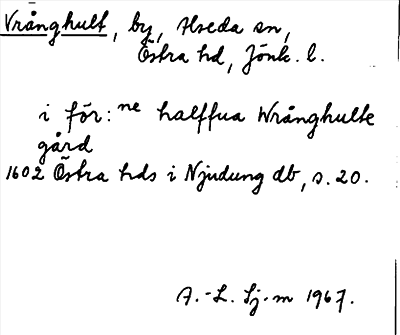 Vrånghult, by, Alseda sn,
Östra hd, Jönk. l.
i för:ne halffua Wrånghulte
gård
1602 Östra hds i Njudung db, s. 20.
A.-L. Sj-m 1967.